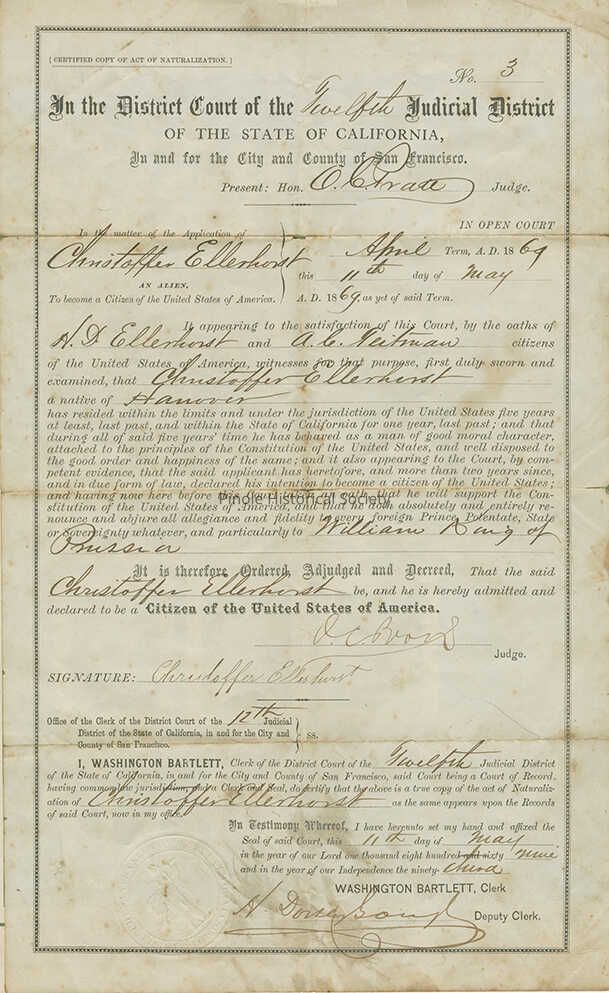 [ CERTIFIED COPY OF ACT OF NATURALIZATION. ]
No. 3
In the District Court of the Twelfth Judicial District
OF THE STATE OF CALIFORNIA,
In and for the City and County of San Francisco.
Present: Hon. O. C. Pratt Judge.
IN OPEN COURT
In the matter of the Application of
April Term, A. D. 1869
Christoffer Ellerhorst
AN ALIEN,
this 11th day of May
To become a Citizen of the United States of America.
A. D. 1869. as yet of said Term.
It appearing to the satisfaction of this Court, by the oaths of
H. D. Ellerhorst and A. C. citizens
of the United States of America, witnesses for that purpose, first duly sworn and
examined, that Christoffer Ellerhorst
a native of Hanover
has resided within the limits and under the jurisdiction of the United States five years
at least, last past, and within the State of California for one year, last past; and that
during all of said five years' time he has behaved as a man of good moral character,
attached to the principles of the Constitution of the United States, and well disposed to
the good order and happiness of the same; and it also appearing to the Court, by com-
petent evidence, that the said applicant has heretofore, and more than two years since,
and in due form of law, declared his intention to become a citizen of the United States;
and having now here before this Court, taken an oath that he will support the Con-
Pinole Historical Society
stitution of the United States of America, and that he doth absolutely and entirely re-
nounce and abjure all allegiance and fidelity to every foreign Prince, Potentate, State
or Sovereignty whatever, and particularly to William King of
Prussia
It is therefore Ordered, Adjudged and Decreed, That the said
Christoffer Ellerhorst be, and he is hereby admitted and
declared to be a Citizen of the United States of America.
Judge.
SIGNATURE: Christoffer Ellerhorst
Office of the Clerk of the District Court of the 12th Judicial
District of the State of California, in and for the City and
County of San Francisco.
ss.
I, WASHINGTON BARTLETT, Clerk of the District Court of the Twelfth Judicial District
of the State of California, in and for the City and County of San Francisco, said Court being a Court of Record,
having common law jurisdiction, and a Clerk and Seal, do certify that the above is a true copy of the act of Naturaliz-
ation of Christoffer Ellerhorst as the same appears upon the Records
of said Court, now in my office.
In Testimony Whereof, I have hereunto set my hand and affixed the
Seal of said Court, this 11th day of May
in the year of our Lord one thousand eight hundred and sixty nine
and in the year of our Independence the ninety-third
WASHINGTON BARTLETT, Clerk
Deputy Clerk.